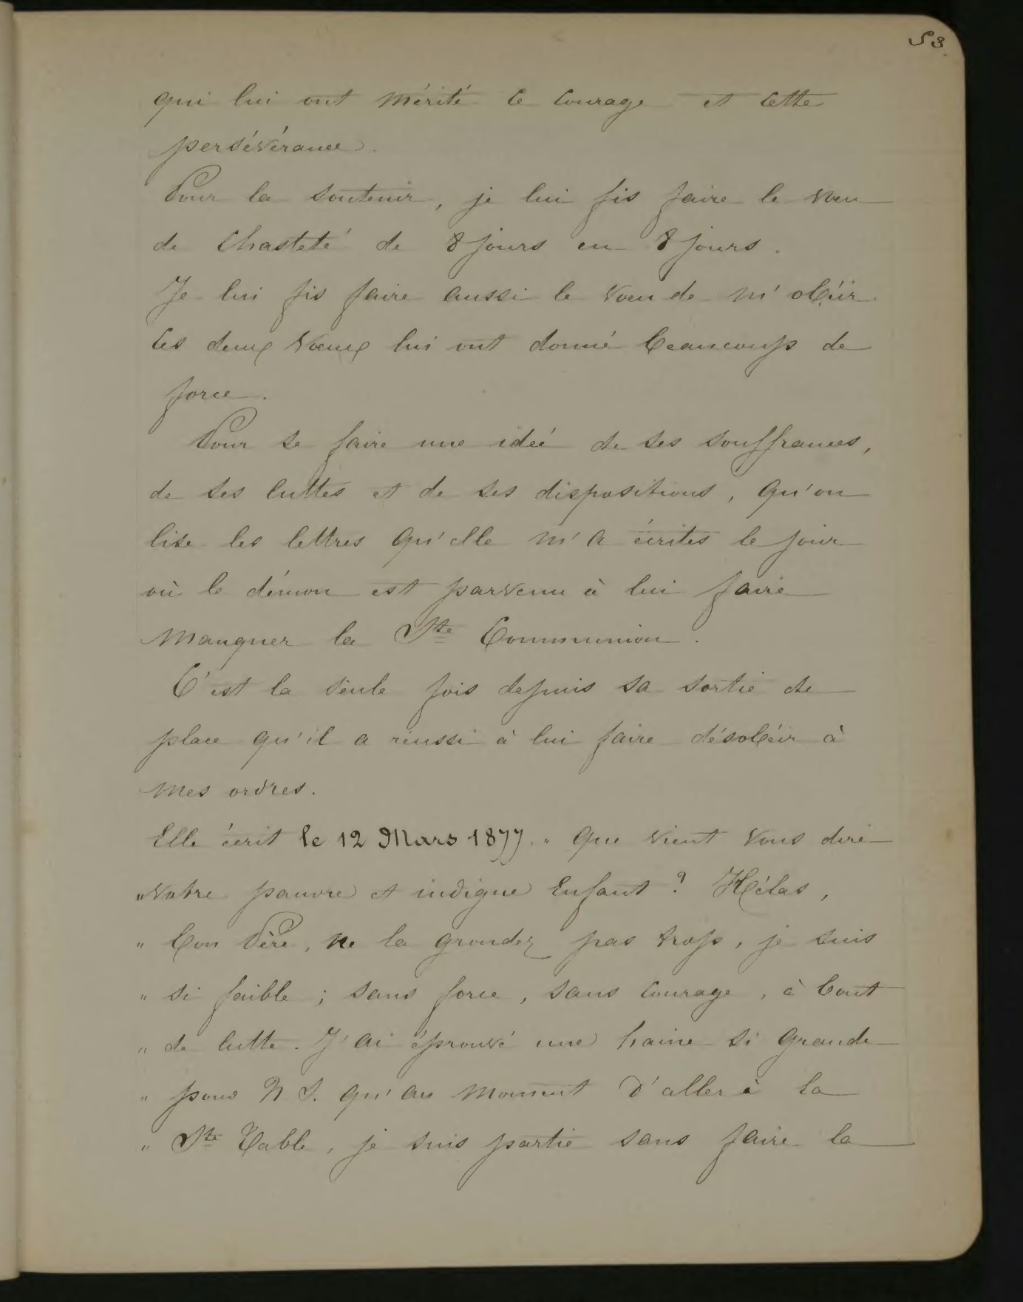 53
qui lui ont mérité ce courage et cette
persévérance.
Pour la soutenir, je lui fis faire le vœu
de Chasteté de 8 jours en 8 jours.
Je lui fis faire aussi le vœu de m'obéir.
Ces deux vœux lui ont donné beaucoup de
force.
Pour se faire une idée de ses souffrances,
de ses luttes et de ses dispositions, qu'on
lise les lettres qu'elle m'a écrites le jour
où le démon est parvenu à lui faire
manquer la Ste Communion.
C'est la seule fois depuis sa sortie de
place qu'il a réussi à lui faire désobéir à
mes ordres.
Elle écrit le 12 Mars 1877. " Que vient vous dire
" votre pauvre et indigne Enfant ? Hélas,
" bon Père, ne la grondez pas trop, je suis
" si faible ; sans force, sans courage, à bout
" de lutte. J'ai éprouvé une haine si grande
" pour N S. qu'au moment d'aller à la
" Ste Table, je suis partie sans faire la